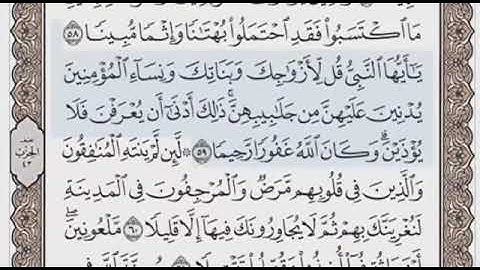 مَا ٱكۡتَسَبُواْ فَقَدِ ٱحۡتَمَلُواْ بُهۡتَٰنٗا وَإِثۡمٗا مُّبِينٗا ٥٨
يَٰٓأَيُّهَا ٱلنَّبِيُّ قُل لِّأَزۡوَٰجِكَ وَبَنَاتِكَ وَنِسَآءِ ٱلۡمُؤۡمِنِينَ
يُدۡنِينَ عَلَيۡهِنَّ مِن جَلَٰبِيبِهِنَّۚ ذَٰلِكَ أَدۡنَىٰٓ أَن يُعۡرَفۡنَ فَلَا
يُؤۡذَيۡنَۗ وَكَانَ ٱللَّهُ غَفُورٗا رَّحِيمٗا ٥٩ ۞ لَّئِن لَّمۡ يَنتَهِ ٱلۡمُنَٰفِقُونَ
وَٱلَّذِينَ فِي قُلُوبِهِم مَّرَضٞ وَٱلۡمُرۡجِفُونَ فِي ٱلۡمَدِينَةِ
لَنُغۡرِيَنَّكَ بِهِمۡ ثُمَّ لَا يُجَاوِرُونَكَ فِيهَآ إِلَّا قَلِيلٗا ٦٠ مَّلۡعُونِينَۖ
الحزب
٤٣